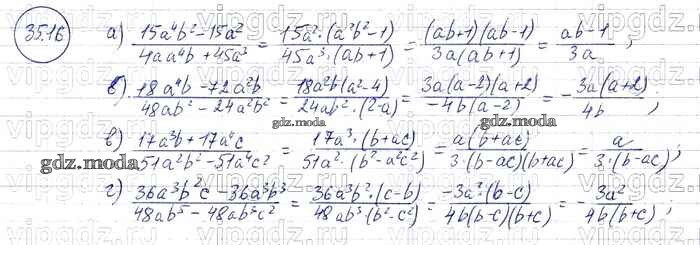 35.16 а) (15a⁴b² − 15a²)/(4aa⁴b + 45a³) = (15a²·(a²b² − 1))/(45a³·(ab+1)) = ((ab+1)(ab−1))/(3a(ab+1)) = (ab−1)/(3a);
б) (18a⁴b − 72a²b)/(48ab² − 24a²b²) = (18a²b(a²−4))/(24ab²·(2−a)) = (3a(a−2)(a+2))/(−4b(a−2)) = −(3a(a+2))/(4b);
в) (17a³b + 17a⁴c)/(51a²b² − 51a⁴c²) = (17a³·(b+ac))/(51a²·(b²−a²c²)) = (a(b+ac))/(3·(b−ac)(b+ac)) = a/(3·(b−ac));
г) (36a³b²c − 36a³b³)/(48ab⁵ − 48ab³c²) = (36a³b²·(c−b))/(48ab³·(b²−c²)) = (−3a²·(b−c))/(4b(b−c)(b+c)) = −(3a²)/(4b(b+c));
gdz.moda
gdz.moda
gdz.moda
gdz.moda